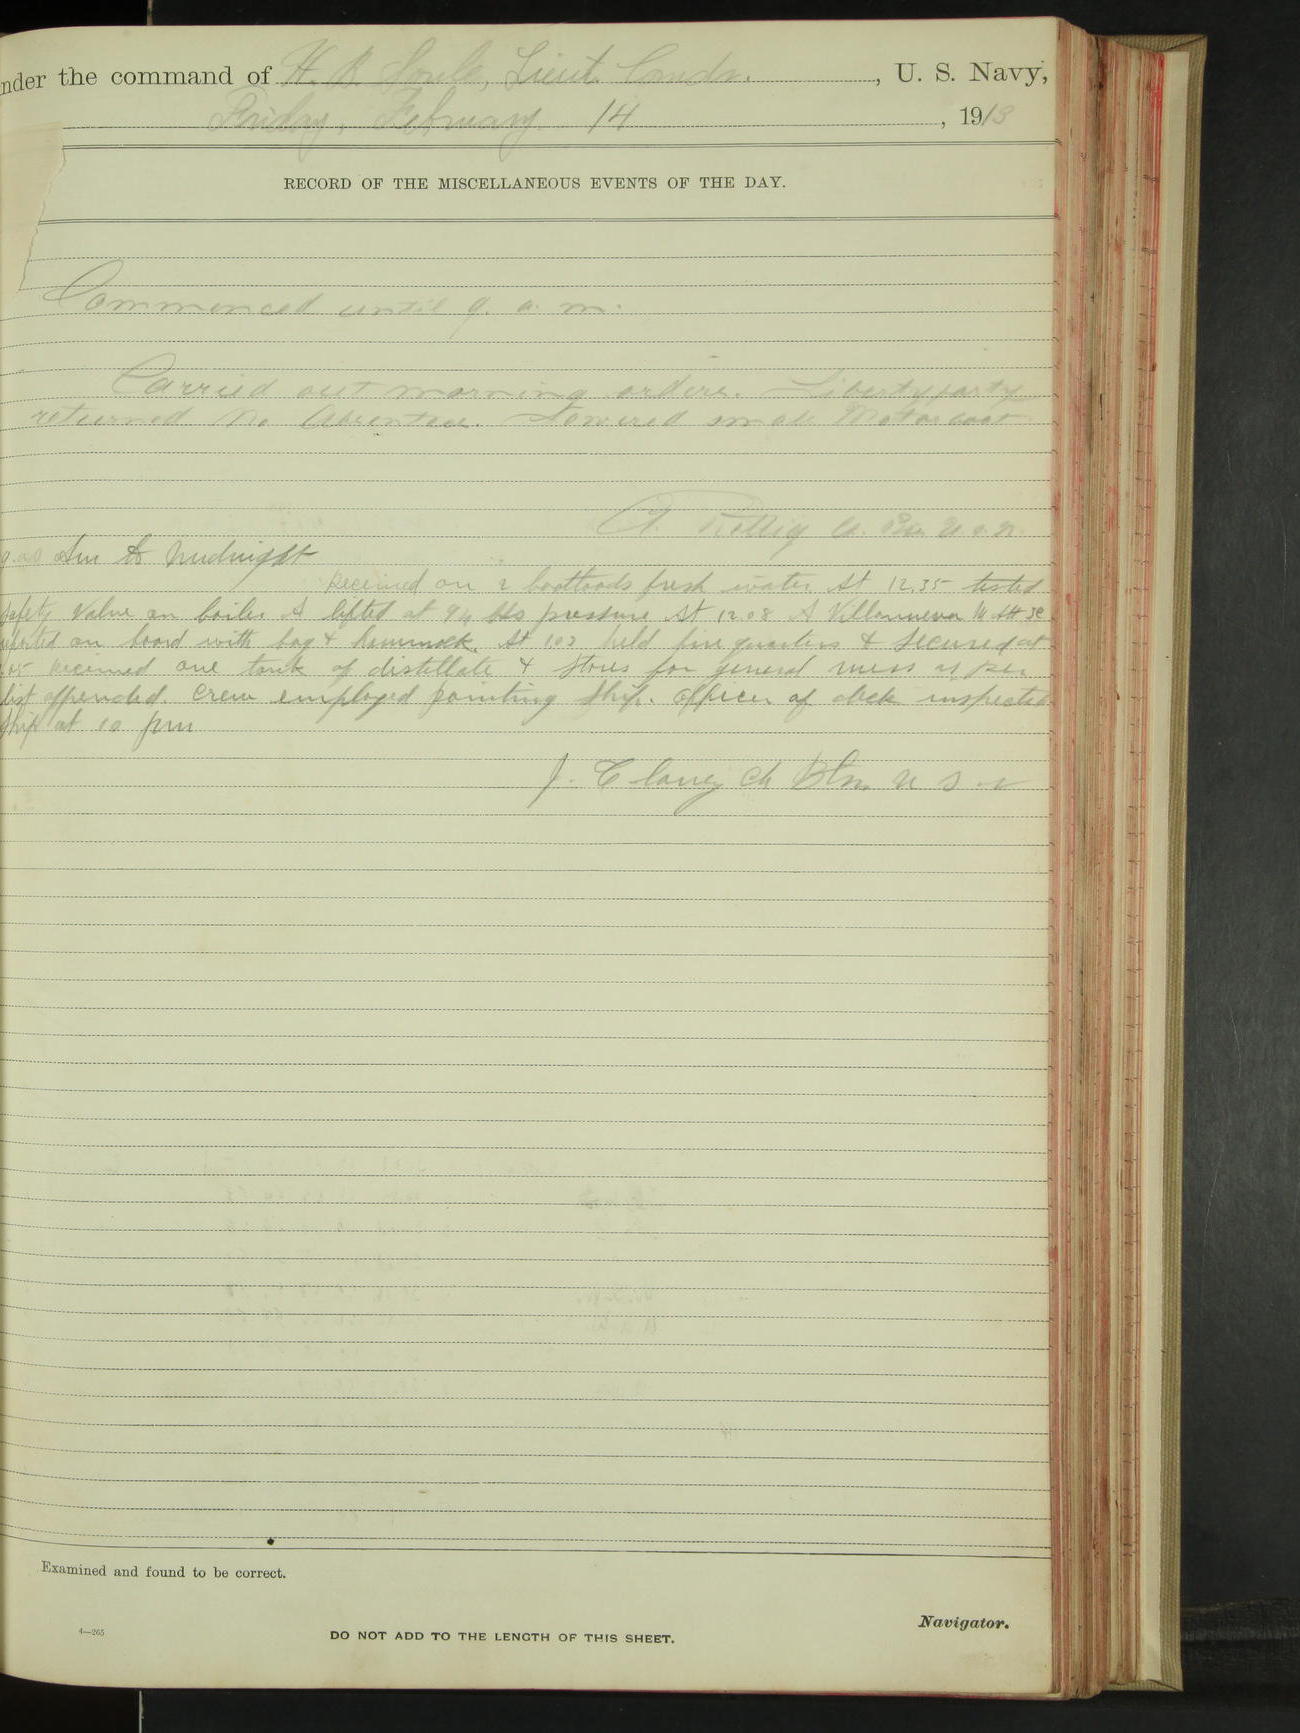 nder the command of H. B. Soule, Lieut. Comdr. , U. S. Navy,
Friday, February 14 , 1913
RECORD OF THE MISCELLANEOUS EVENTS OF THE DAY.
Commenced until 9. a. m.
Carried out morning orders. Liberty party
returned no Absentees. Lowered small Motor boat
A. Rettig
am to midnight
Received on 2 boatloads fresh water At 12.35 tested
safety valve on boiler A lifted at 94 lbs pressure At 12.08 A Villanueva M Att 3c
reported on board with bag & hammock. At 1.03 held fire quarters & Secured at
received one tank of distillate & Stores for general mess as per
list appended Crew employed painting ship. Officer of deck inspected
ship at 10 pm
J. Clancy Ch Btn. U S N
Examined and found to be correct.
Navigator.
4—265
DO NOT ADD TO THE LENGTH OF THIS SHEET.